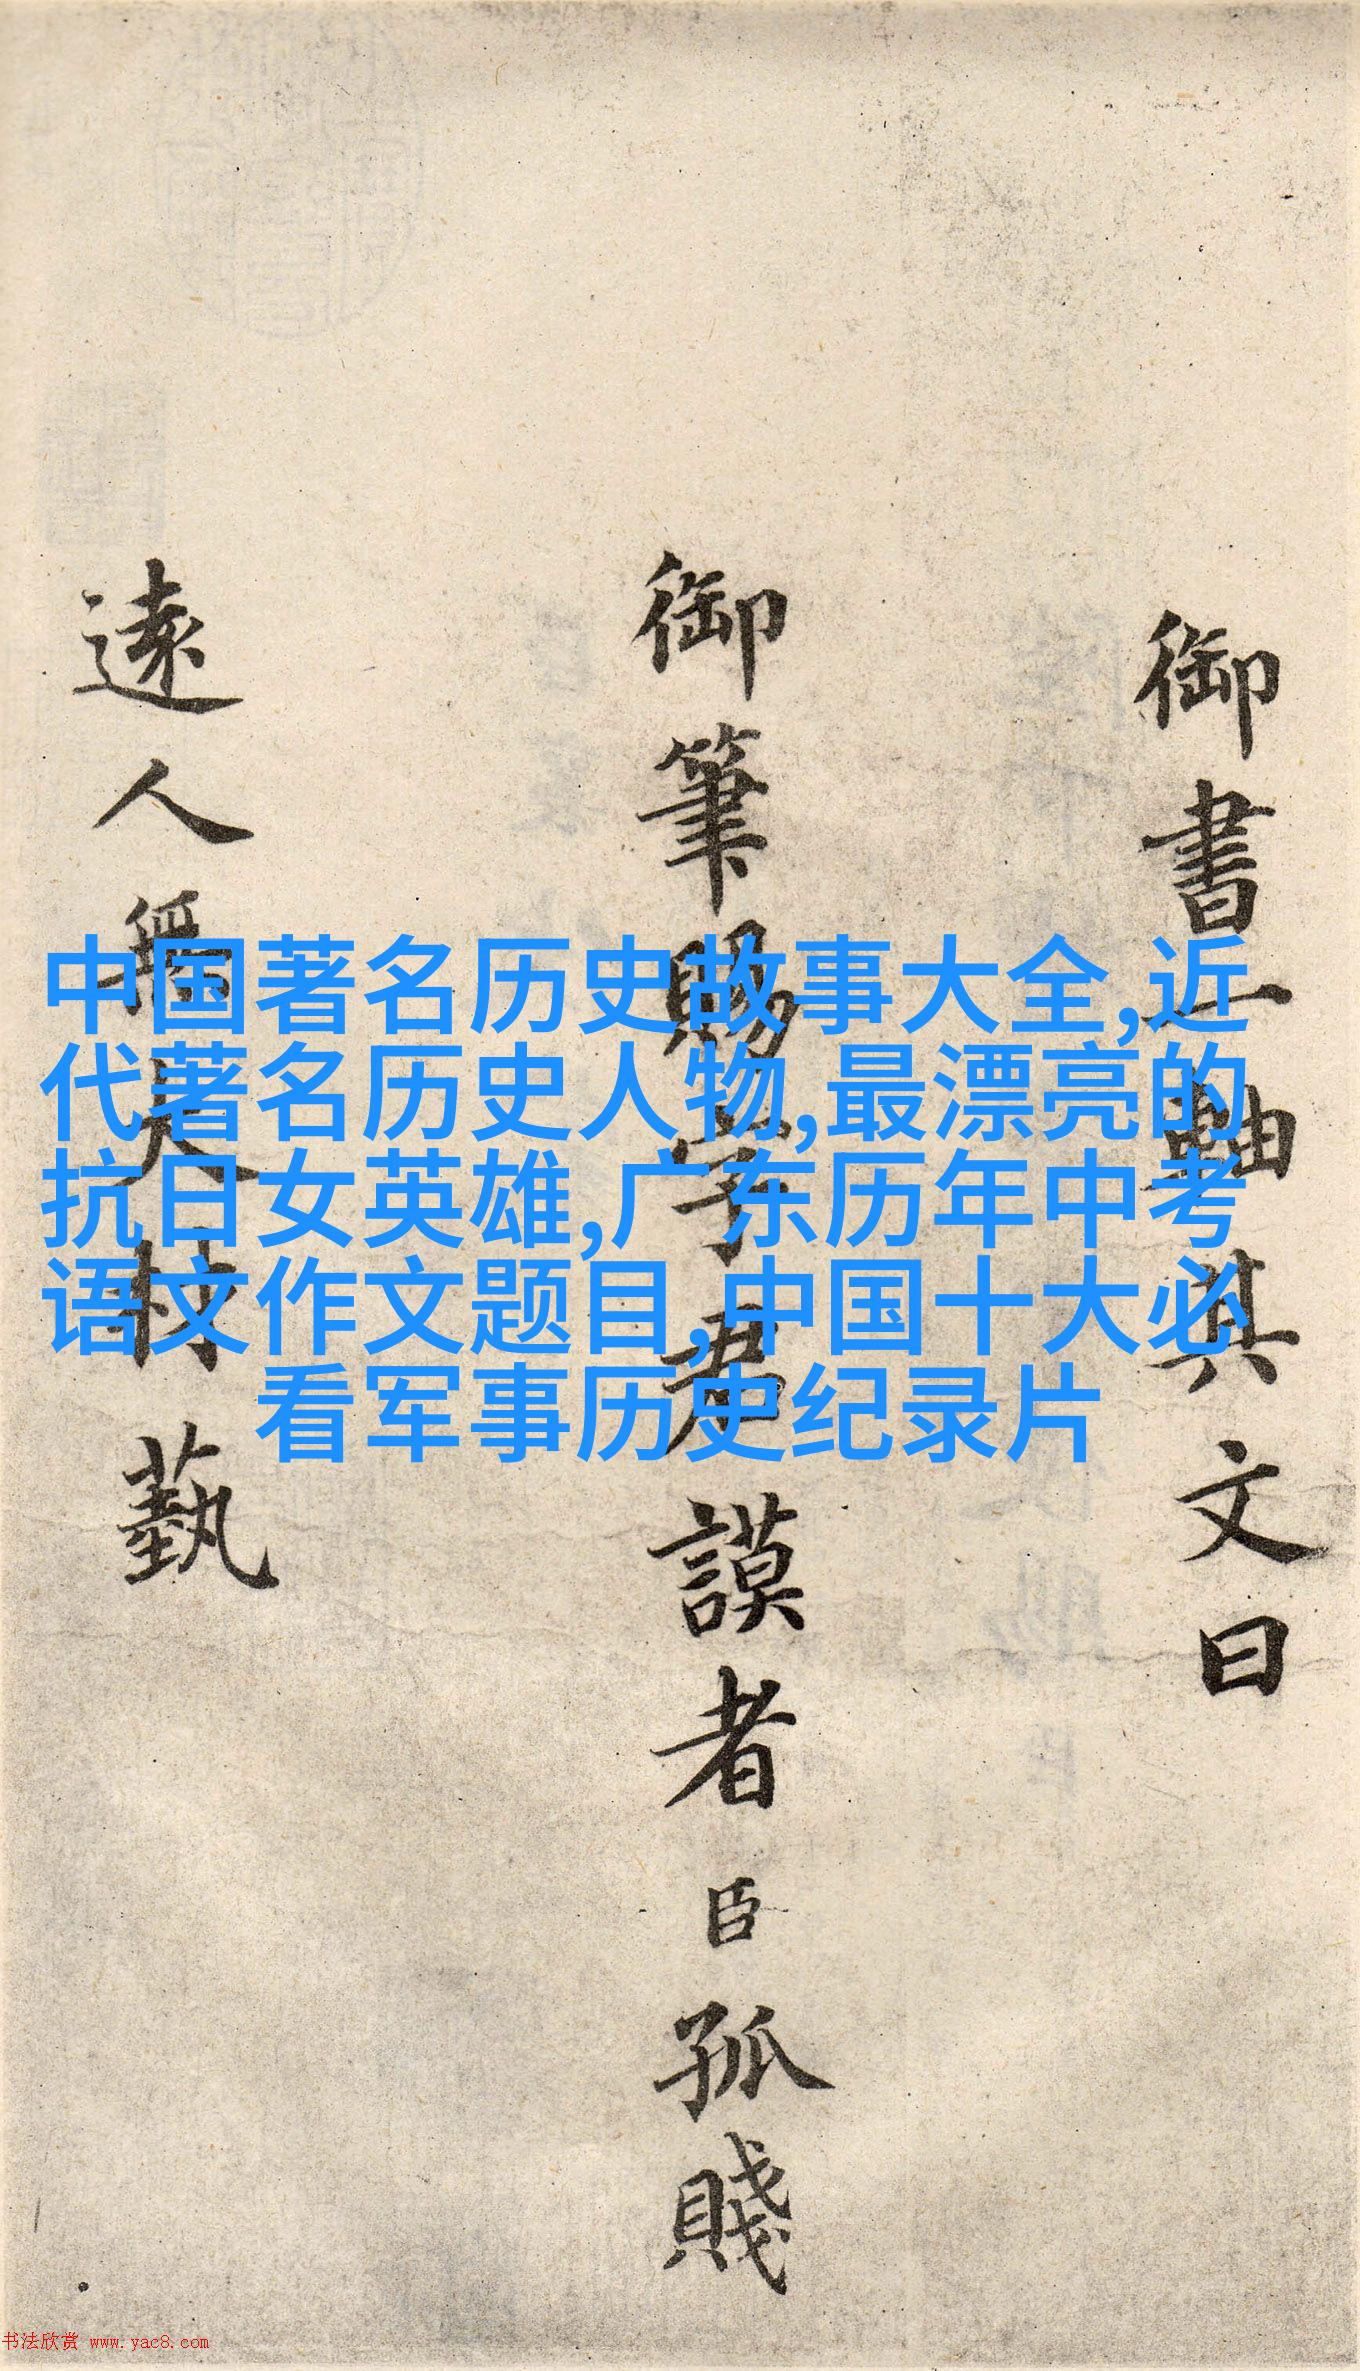 御書一軸其文曰
御筆賜字君謨者臣孤賤
遠人無大材藝
中国著名历史故事大全,近
代著名历史人物,最漂亮的
抗日女英雄,广东历年中考
语文作文题目,中国十大必
看军事历史纪录片
书法欣赏 www.yac8.com